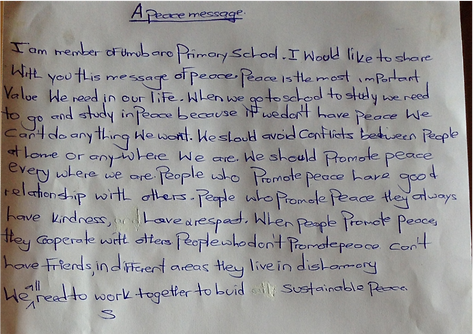 A Peace message
I am member of Umubano Primary School. I Would like to share
With you this message of peace. Peace is the most important
Value We need in our life. When we go to school to study we need
to go and study in Peace because if we don't have Peace We
Can't do any thing We want. We should avoid Conflicts between People
at home or any Where We are. We should Promote peace
every where we are. People who Promote peace have good
relationship with others. People who Promote Peace they always
have Kindness, have a respect. When People Promote peace,
they Cooperate with others People who don't Promote peace Can't
have Friends, in different areas they live in disharmony
We all need to work together to buid Sustainable Peace.
S